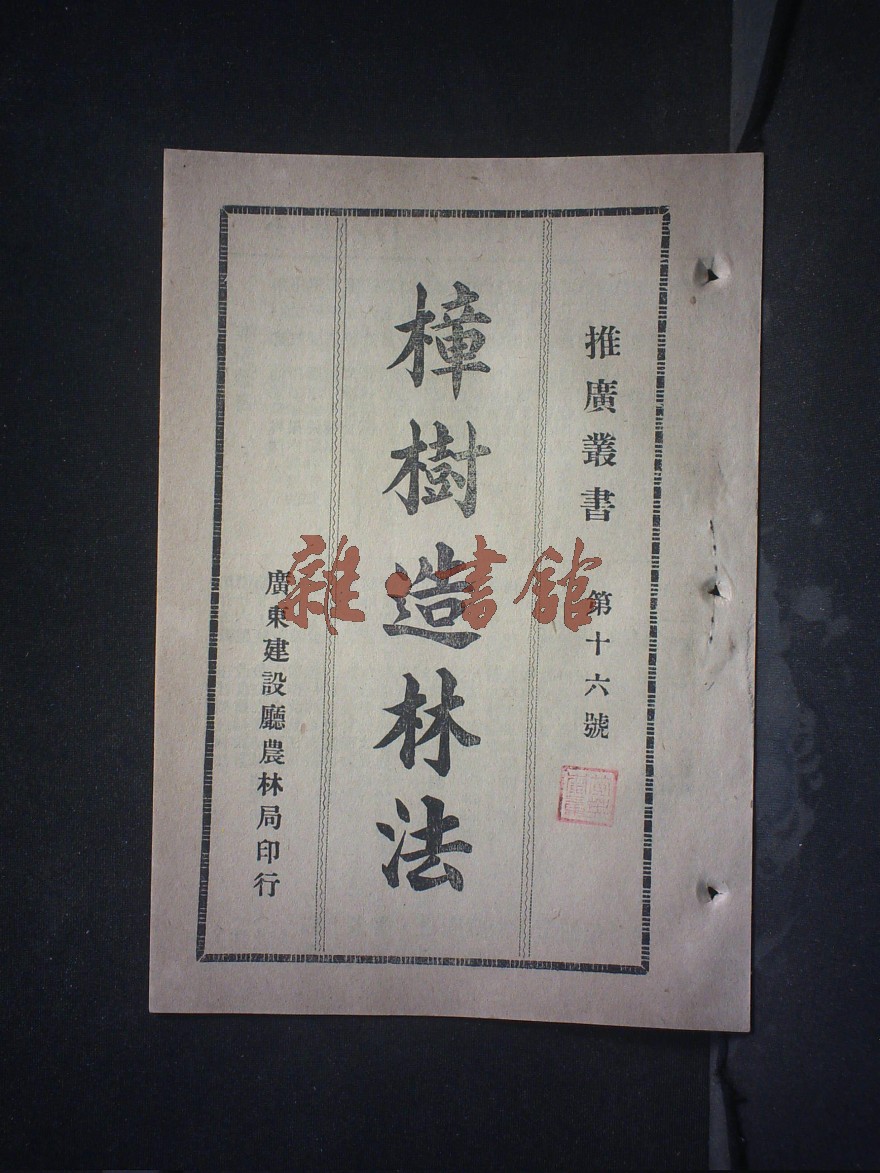 推廣叢書 第十六號
樟樹造林法
廣東建設廳農林局印行
雜·書館